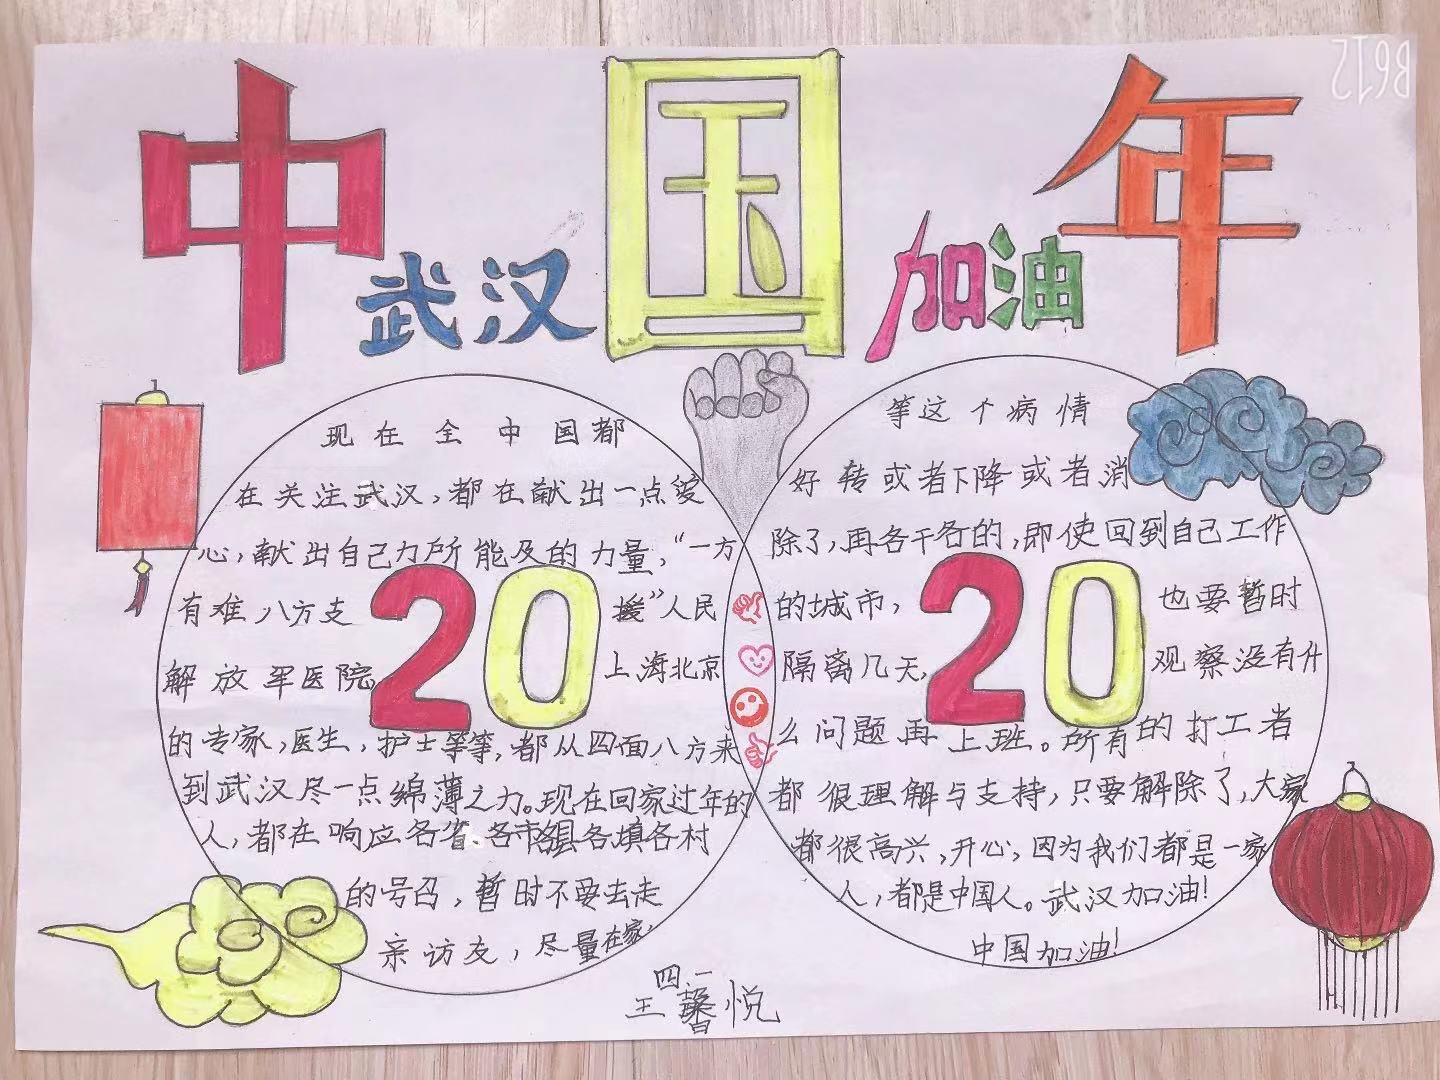 中国年
武汉加油
现在全中国都
在关注武汉,都在献出一点爱
心,献出自己力所能及的力量,“一方
有难八方支援”人民
解放军医院,上海北京
的专家,医生,护士等等,都从四面八方来
到武汉尽一点绵薄之力。现在回家过年的
人,都在响应各省、各市各县各填各村
的号召,暂时不要去走
亲访友,尽量在家,
2020
等这个病情
好转或者下降或者消
除了,再各干各的,即使回到自己工作
的城市,也要暂时
隔离几天,观察没有什
么问题再上班。所有的打工者
都很理解与支持,只要解除了,大家
都很高兴,开心,因为我们都是一家
人,都是中国人。武汉加油!
中国加油!
2020
四.一
王馨悦
B612